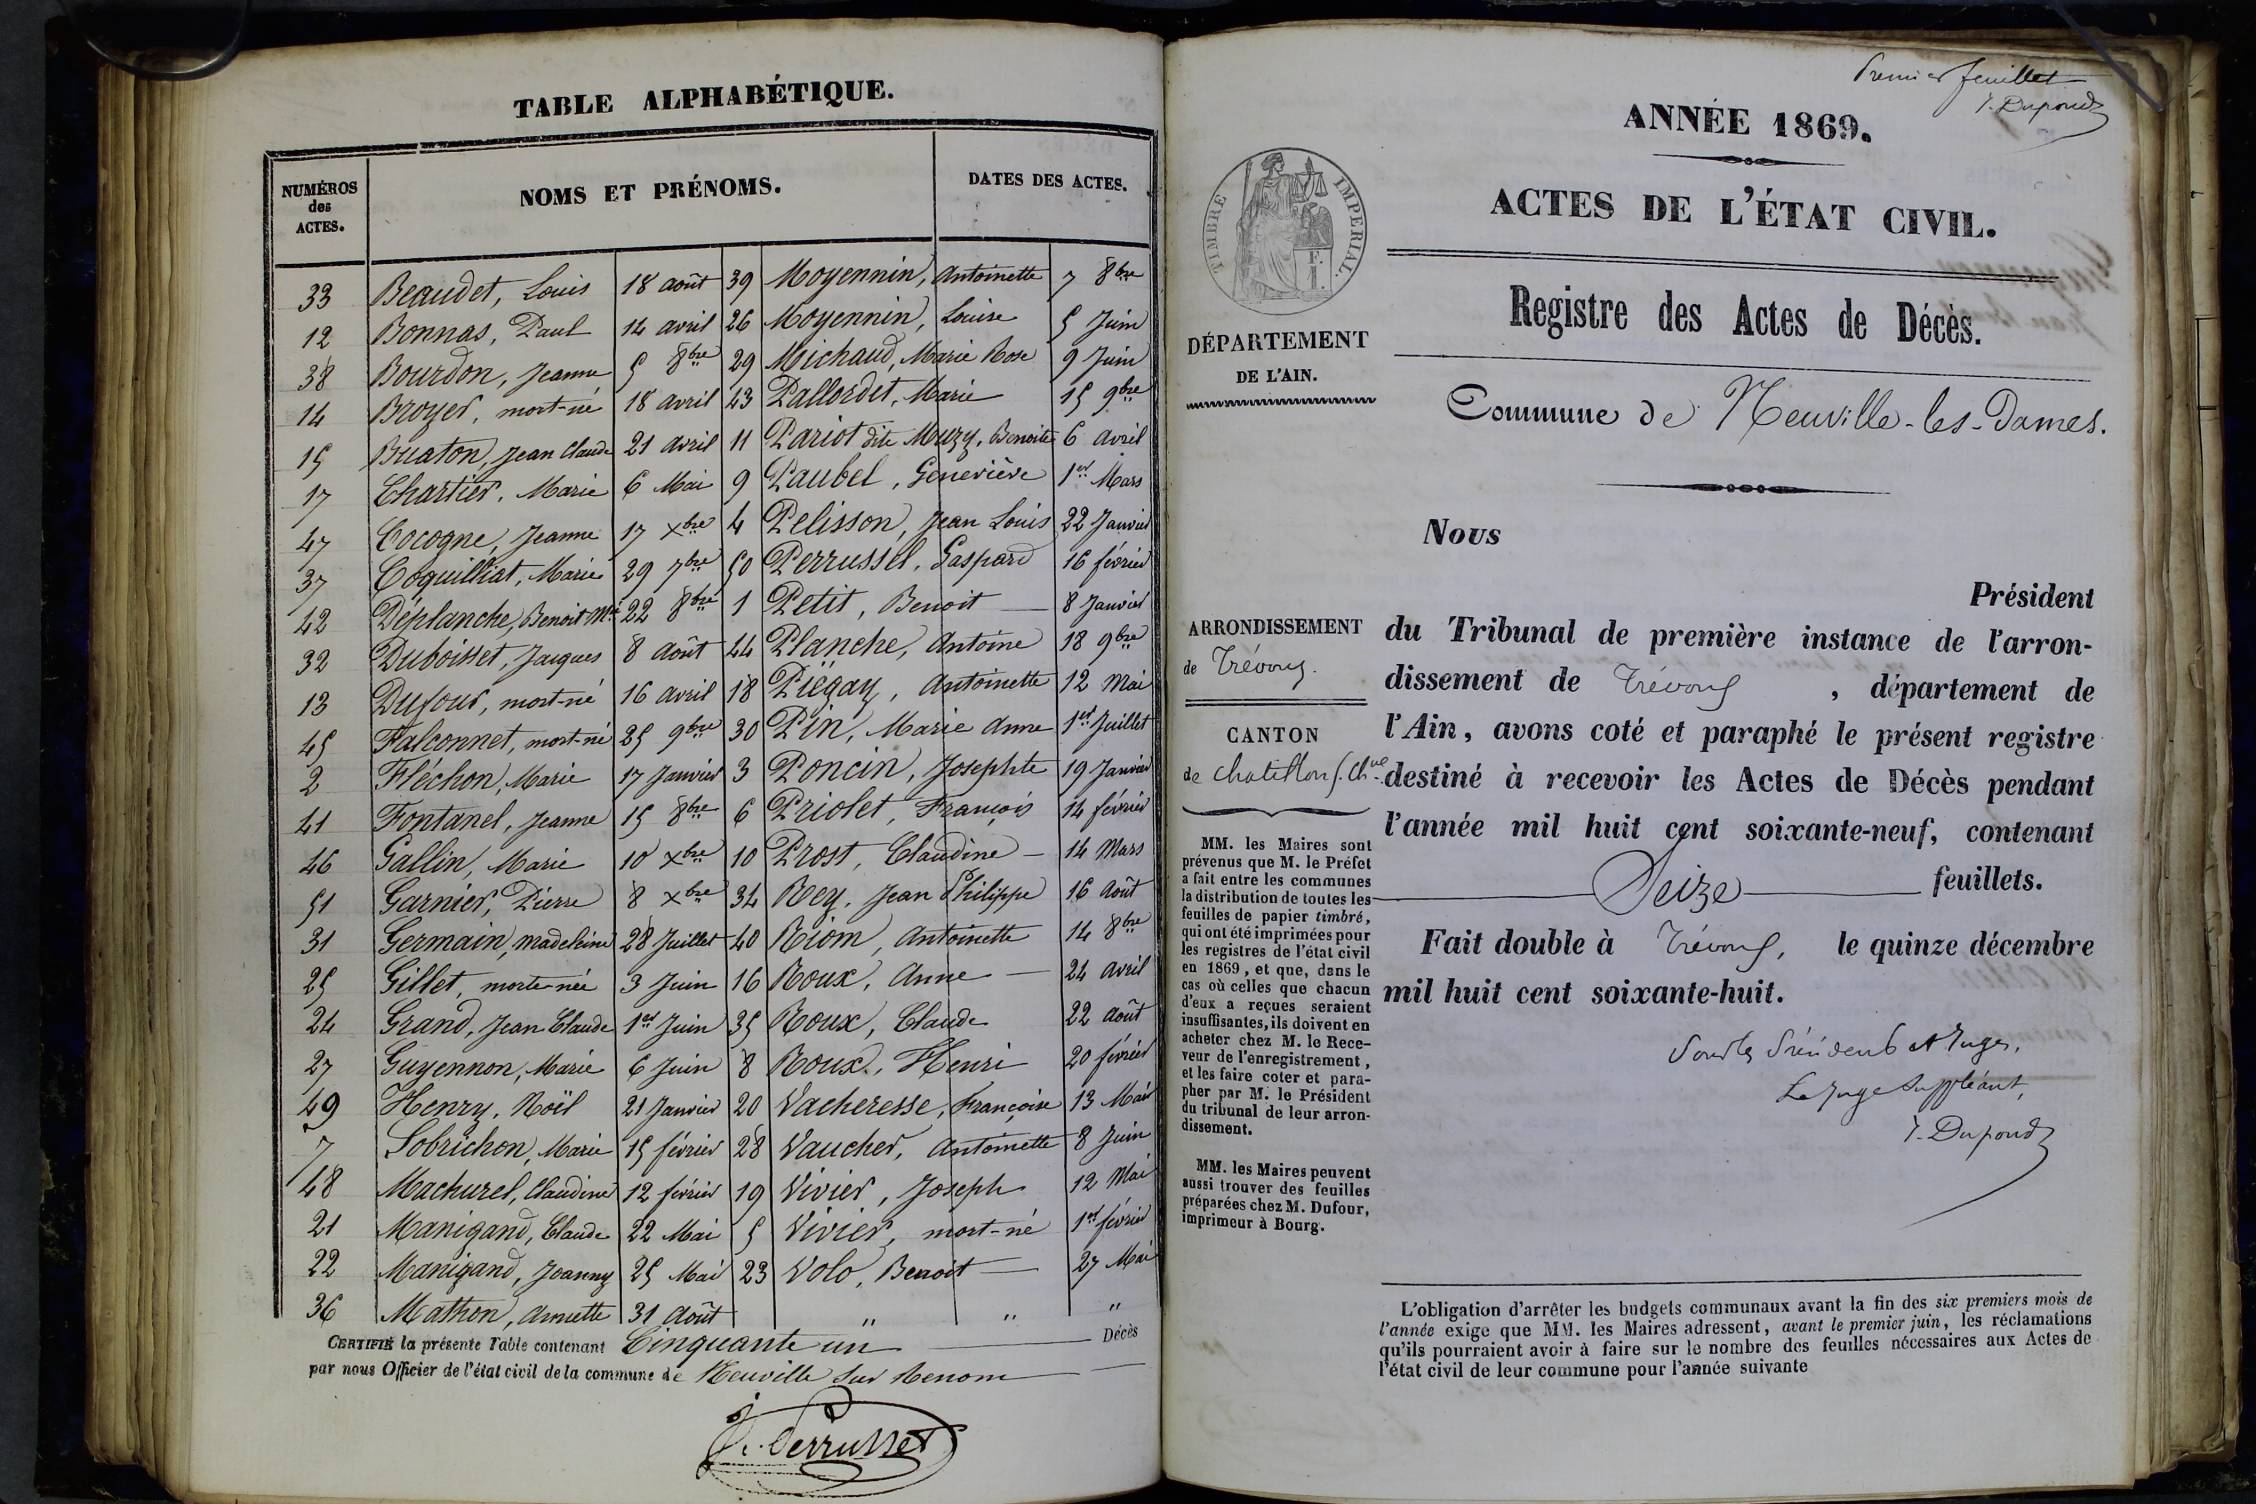 TABLE ALPHABÉTIQUE.
NUMÉROS des ACTES.
NOMS ET PRÉNOMS.
DATES DES ACTES.
33 Beaudet, Louis 18 août 39 Moyennin, Antoinette 7 8bre
12 Bonnas, Paul 14 avril 26 Moyennin, Louise 5 Juin
38 Bourdon, Jeanne 5 8bre 29 Michaud, Marie Rose 9 Juin
14 Broyer, mort-né 18 avril 43 Pallordet, Marie 15 9bre
15 Buaton, Jean Claude 21 avril 11 Pariot dite Muzy, Benoite 6 avril
17 Chartier, Marie 6 Mai 9 Paubel, Geneviève 1er Mars
47 Cocogne, Jeanne 17 Xbre 4 Pelisson, Jean Louis 22 Janvier
37 Coquilliat, Marie 29 7bre 50 Perrussel, Gaspard 16 février
42 Déplanche, Benoit Mie 22 8bre 1 Petit, Benoit — 8 Janvier
32 Duboisset, Jacques 8 août 44 Planche, Antoine 18 9bre
13 Dufour, mort-né 16 avril 18 Piégay, Antoinette 12 Mai
45 Falconnet, mort-né 25 9bre 30 Pin, Marie Anne 1er Juillet
2 Fléchon, Marie 17 Janvier 3 Poncin, Josephte 19 Janvier
41 Fontanel, Jeanne 15 8bre 6 Priolet, François 14 février
46 Gallin, Marie 10 Xbre 10 Prost, Claudine — 14 Mars
51 Garnier, Pierre 8 Xbre 34 Rey, Jean Philippe 16 Août
31 Germain, madeleine 28 Juillet 40 Riom, Antoinette 14 8bre
25 Gillet, morte-née 3 Juin 16 Roux, Anne — 24 avril
24 Grand, Jean Claude 1er Juin 35 Roux, Claude 22 août
27 Guyennon, Marie 6 Juin 8 Roux, Henri 20 février
49 Henry, Noël 21 Janvier 20 Vacheresse, Françoise 13 Mai
7 Lobrichon, Marie 15 février 28 Vaucher, Antoinette 8 Juin
48 Machurel, Claudine 12 février 19 Vivier, Joseph 12 Mai
21 Manigand, Claude 22 Mai 5 Vivier, mort-né 1er février
22 Manigand, Joanny 25 Mai 23 Volo, Benoit — 27 Mai
36 Mathon, Annette 31 Août " " "
CERTIFIÉ la présente Table contenant Cinquante un Décès
par nous Officier de l'état civil de la commune de Neuville sur Renom
Perrussel
Premier feuillet
J. Dupond
ANNÉE 1869.
ACTES DE L'ÉTAT CIVIL.
TIMBRE IMPERIAL.
F. I.
Registre des Actes de Décès.
DÉPARTEMENT
DE L'AIN.
Commune de Neuville-les-Dames.
Nous
Président
ARRONDISSEMENT
de Trévoux.
CANTON
de Chatillon s. Chne
du Tribunal de première instance de l'arron-
dissement de Trévoux, département de
l'Ain, avons coté et paraphé le présent registre
destiné à recevoir les Actes de Décès pendant
l'année mil huit cent soixante-neuf, contenant
Seize feuillets.
Fait double à Trévoux, le quinze décembre
mil huit cent soixante-huit.
Le Juge Suppléant,
J. Dupond
MM. les Maires sont
prévenus que M. le Préfet
a fait entre les communes
la distribution de toutes les
feuilles de papier timbré,
qui ont été imprimées pour
les registres de l'état civil
en 1869, et que, dans le
cas où celles que chacun
d'eux a reçues seraient
insuffisantes, ils doivent en
acheter chez M. le Rece-
veur de l'enregistrement,
et les faire coter et para-
pher par M. le Président
du tribunal de leur arron-
dissement.
MM. les Maires peuvent
aussi trouver des feuilles
préparées chez M. Dufour,
imprimeur à Bourg.
L'obligation d'arrêter les budgets communaux avant la fin des six premiers mois de
l'année exige que MM. les Maires adressent, avant le premier juin, les réclamations
qu'ils pourraient avoir à faire sur le nombre des feuilles nécessaires aux Actes de
l'état civil de leur commune pour l'année suivante